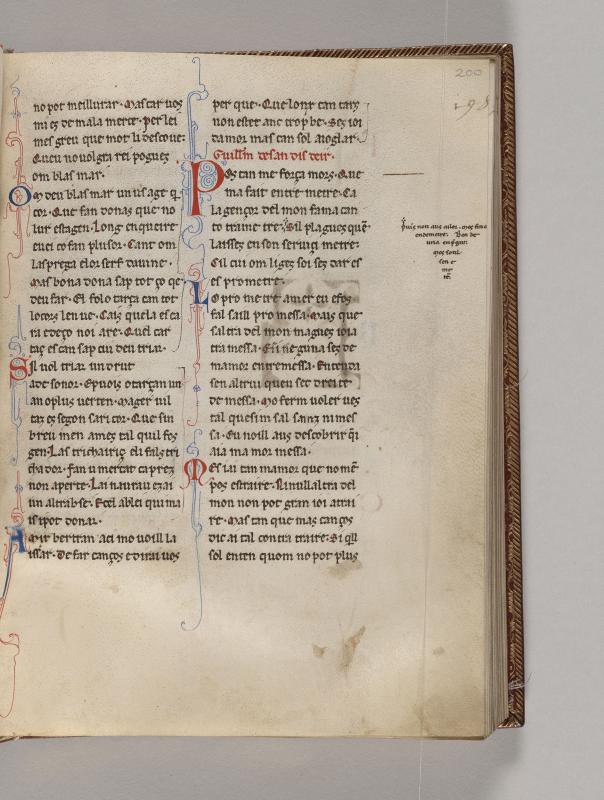 200
198
no pot meillurar. Mas car vos
mi es de mala merce. per lei
mes greu que mot li descove:
Queu no vol gra rei pogues
om blas mar.
On deu blas mar un usage q
cor. Que fan donas que no
lur es tagen. Long en queire
euei co fan plusor. Cant om
las prega e los serf dauine.
Mas bona dona sap tot ço qe
deu far. El folo tarça can tot
locors len ue. Cais quela es ca
ra e deço noi are. Quel car
taç es can sap cui deu triar.
Sil uol triar un drut
ade sonor. Epuois
an oplus uerten. Mager uil
taz es segon sa ricor. Que sin
breu men ames tal quil fos
gen. Las trichairiç eli fals tri
chador. fan u mercat ca prez
non aperte. Lai nautau e zai
un altrabse. Ecel ablei qui ma
is ipot donar.
Amir bertran aci mo uoill la
issar. De far cançes e dirai uos
per que. Que lonr can tarz
non es tee anc trop be. Ses ioi
damor mas can sol aioglar.
Guillm desan dis deir.
Pos tan me força mors. Que
ma fait entre metre. Ca
la gençor del mon fama can
to traire tre. Sil pla gues que
laisses en son seruici metre:
Cil cui om liges soi ses dar es
es prometre.
Lo pro metre amer eu e fos
fal saill pro messa. Mais que
sal tra del mon magues ioia
tra messa. E si ne guna ses de
mamor entremessa. En tenda
sen altrui queu sec dreite
de messa. No ferm uoler ues
tal que si m sal nimes
sa. Eu noill aus descobrir qi
aia ma mor messa.
Mes iai tan mamor que nomê
pos estraire. Ni nuill altra del
mon non pot gran ioi atrai
re. Mas tan que mas canços
dic ai tal contra traire: Si qll
sol enten quom no pot plus